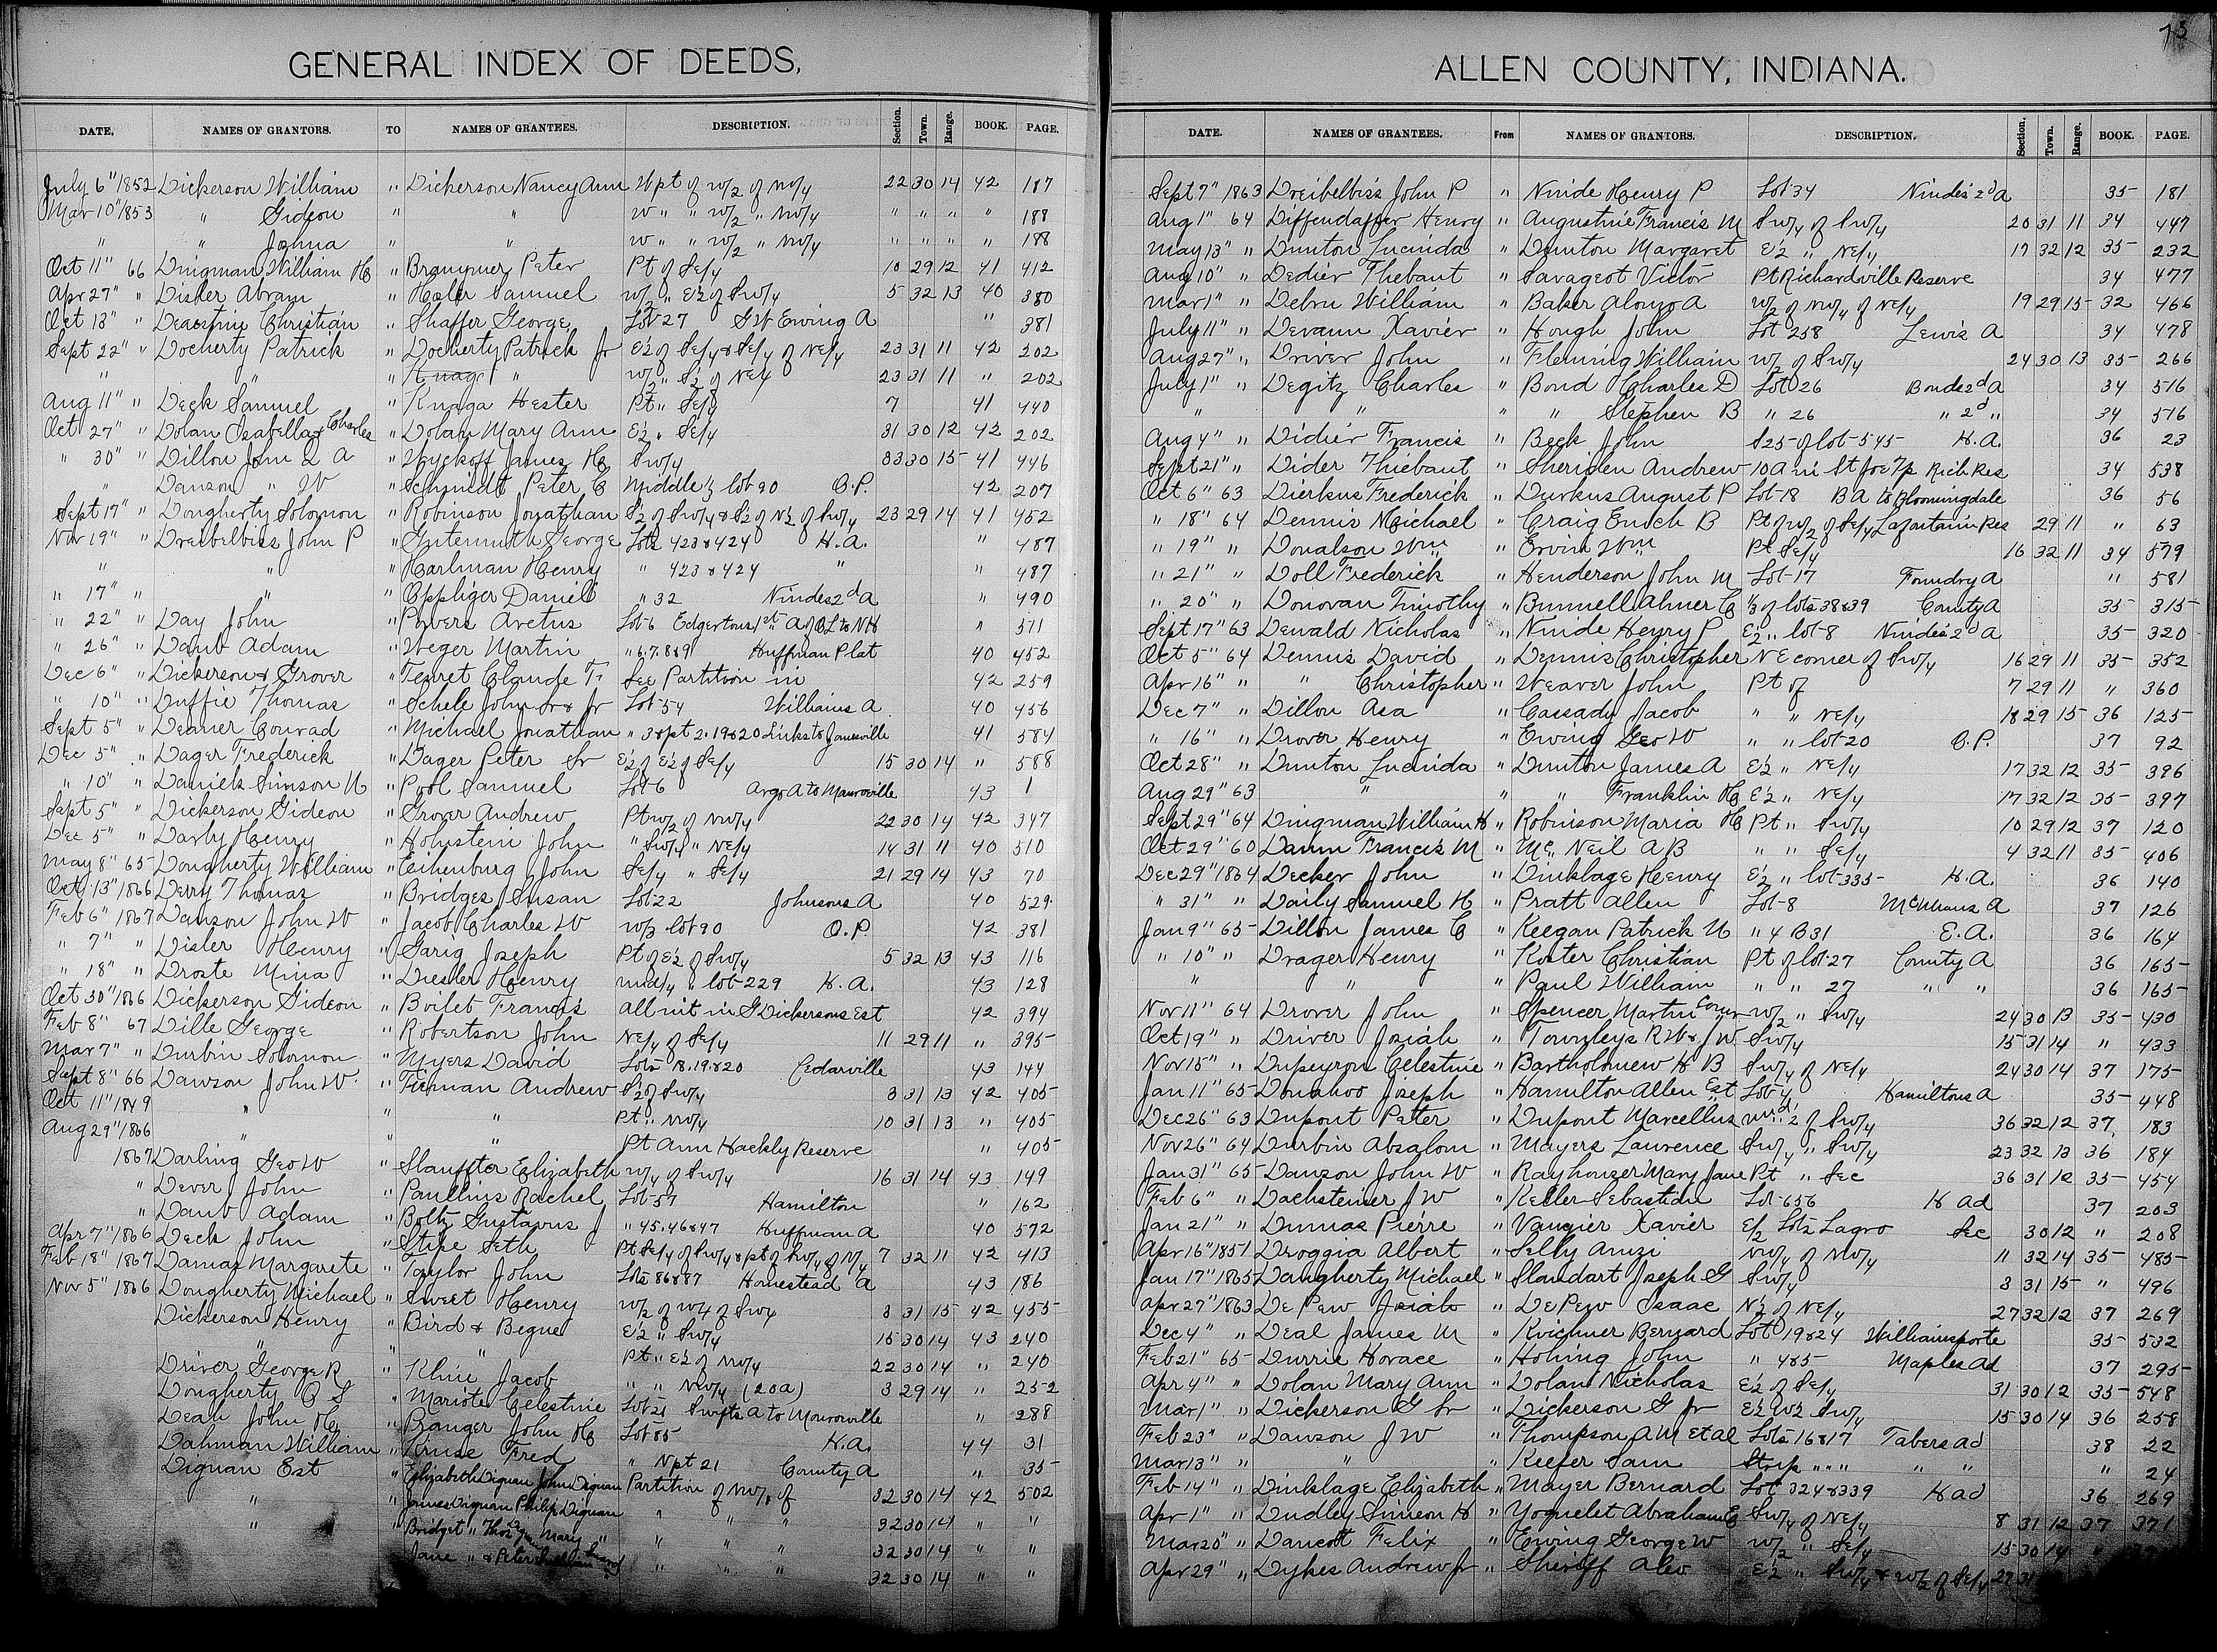 GENERAL INDEX OF DEEDS,
DATE, NAMES OF GRANTORS. TO NAMES OF GRANTEES. DESCRIPTION. Section. Town. Range. BOOK. PAGE.
July 6" 1852 Dickerson William " Dickerson Nancy Ann W pt of W/2 of NW/4 22 30 14 42 187
Mar 10" 1853 " Gideon " " W " " W/2 " NW/4 " " " " 188
" " Johna " " W " " W/2 " NW/4 " " " " 188
Oct 11" 66 Dingman William H " Branymer Peter Pt of SE/4 10 29 12 41 412
Apr 27" " Disler Abram " Hater Samuel W/2 " E/2 of SW/4 5 32 13 40 380
Oct 13" " Christian " Shaffer George Lot 27 G W Ewing A " 381
Sept 22" " Docherty Patrick " Docherty Patrick Jr E/2 of SE/4 & SE/4 of NE/4 23 31 11 42 202
" " " " W/2 " S/2 of NE/4 23 31 11 " 202
Aug 11" " Deck Samuel " Knaga Hester Pt " SE/4 7 41 440
Oct 27" " Dolan Isabella & Charles " Dolan Mary Ann E/2 " SE/4 31 30 12 42 202
" 30" " Dillon John L A " Wyckoff James H SW/4 33 30 15 41 446
" Dawson " W " Schmidt Peter C Middle 1/3 lot 90 O.P. 42 207
Sept 17" " Dougherty Solomon " Robinson Jonathan S/2 of SW/4 & S/2 of N/2 of SW/4 23 29 14 41 452
Nov 19" " Dreibelbiss John P " Gutermuth George Lots 423 & 424 H.A. " 487
" " " Harlman Henry " 423 & 424 " " 487
" 17" " " " Oppliger Daniel " 32 Nindes 2d A " 490
" 22" " Day John " Powers Aretus Lot 6 Edgertons 1st A of O L to N H " 511
" 26" " Daub Adam " Weger Martin " 6.7.8&9 Huffman Plat 40 452
Dec 6" " Dickerson & Grover " Terret Claude F See Partition in 42 259
" 10" " Duffie Thomas " Schele John Sr & Jr Lot 54 Williams A 40 456
Sept 5" " Deaner Conrad " Michael Jonathan " 3 & pt 2. 19&20 Links to Jamesville 41 584
Dec 5" " Dager Frederick " Dager Peter Sr E/2 of E/2 of SE/4 15 30 14 " 588
" 10" " Daniels Simson N " Pool Samuel Lot 6 Argo A to Monroeville 43 1
Sept 5" " Dickerson Gideon " Grover Andrew Pt W/2 of NW/4 22 30 14 42 347
Dec 5" " Darby Henry " Hohnstein John " SW/4 " NE/4 14 31 11 40 510
May 8" 65 Dougherty William " Eikenburg John SE/4 " SE/4 21 29 14 43 70
Oct 13" 1866 Derry Thomas " Bridges Susan Lot 22 Johnsons A 40 529
Feb 6" 1867 Dawson John W " Jacob Charles W W/3 lot 90 O.P. 42 381
" 7" " Disler Henry " Garig Joseph Pt of E/2 of SW/4 5 32 13 43 116
" 18" " Droste Mina " Diesler Henry und/4 " lot 229 H.A. 43 128
Oct 30" 1866 Dickerson Gideon " Boilet Francis all int in G Dickersons Est 42 394
Feb 8" 67 Dille George " Robertson John NE/4 of SE/4 11 29 11 " 395
Mar 7" " Durbin Solomon " Myers David Lots 18.19.&20 Cedarville 43 144
Sept 8" 66 Dawson John W. " Tieman Andrew S/2 of SW/4 3 31 13 42 405
Oct 11" 1849 " " " Pt " NW/4 10 31 13 " 405
Aug 29" 1866 " " " Pt Ann Hackly Reserve " 405
1867 Darling Geo W " Stauffter Elizabeth W/4 of SW/4 16 31 14 43 149
" Dever John " Paullins Rachel Lot 57 Hamilton " 162
" Daub Adam " Boltz Gustavus J " 45.46&47 Huffman A 40 572
Apr 7" 1866 Deck John " Stire Seth Pt SE/4 of SW/4 & pt of SW/4 of N/4 7 32 11 42 413
Feb 18" 1867 Damas Margarete " Taylor John Lots 86&87 Homestead A 43 186
Nov 5" 1866 Dougherty Michael " Sweet Henry W/2 of W/4 of SW/4 3 31 15 42 455
Dickerson Henry " Bird & Begue E/2 " SW/4 15 30 14 43 240
" " " Pt " E/2 of NW/4 22 30 14 " 240
Driver George R " Kline Jacob " " NW/4 (20a) 3 29 14 " 252
Dougherty C S " Mariote Celestine Lot 21 Swifts A to Monroeville " 288
Deah John H " Branger John H Lot 85 H.A. 44 31
Dahman William " Kruse Fred " N pt 21 County A " 35
Dignan Est " Elizabeth Dignan John Dignan Partition of NW/4 of 32 30 14 42 502
" " James Dignan Philip Dignan " " " 32 30 14 " "
" " Bridget " Thos Dignan Mary " " " " 32 30 14 " "
Jane " & Peter " " " 32 30 14 " "
15
ALLEN COUNTY, INDIANA.
DATE. NAMES OF GRANTEES. From NAMES OF GRANTORS. DESCRIPTION. Section. Town. Range. BOOK. PAGE.
Sept 7" 1863 Dreibelbiss John P " Ninde Henry P Lot 34 Nindes 2d A 35 181
Aug 1" 64 Diffendaffer Henry " Augustine Francis M SW/4 of SW/4 20 31 11 34 447
May 13" " Dunton Lucinda " Dunton Margaret E/2 " NE/4 17 32 12 35 232
Aug 10" " Dedier Thebaut " Savageot Victor Pt Richardville Reserve 34 477
Mar 1" " Debru William " Baker Alonzo A W/2 of NW/4 of NE/4 19 29 15 32 466
July 11" " Devaun Xavier " Hough John Lot 258 Lewis A 34 478
Aug 27" " Driver John " Fleming William W/2 of SW/4 24 30 13 35 266
July 1" " Degitz Charles " Bond Charles D Lot 26 Bonds 2d A 34 516
" " " " Stephen B " 26 " 2d " 34 516
Aug 4" " Didier Francis " Beck John S 25 of lot 545 H.A. 36 23
Sept 21" " Dider Thiebaut " Sheriden Andrew 10 A in St Joe Tp Rich Res 34 538
Oct 6" 63 Dierkus Frederick " Durkus August P Lot 18 B A to Bloomingdale 36 56
" 18" 64 Dennis Michael " Craig Enoch B Pt of W/2 of SE/4 Lafontain Res 29 11 " 63
" 19" " Donalson Wm " Ervin Wm Pt SE/4 16 32 11 34 579
" 21" " Doll Frederick " Henderson John M Lot 17 Foundry A " 581
" 20" " Donovan Timothy " Bunnell Abner C 1/3 of lots 38&39 County A 35 315
Sept 17" 63 Dewald Nicholas " Ninde Henry P E/2 " lot 8 Nindes 2d A 35 320
Oct 5" 64 Dennis David " Dennis Christopher N E corner of SW/4 16 29 11 35 352
Apr 16" " " Christopher " Weaver John Pt of 7 29 11 " 360
Dec 7" " Dillon Asa " Cassady Jacob " " NE/4 18 29 15 36 125
" 16" " Drover Henry " Ewing Geo W " " lot 20 O.P. 37 92
Oct 28" " Dunton Lucinda " Dunton James A E/2 " NE/4 17 32 12 35 396
Aug 29" 63 " " " Franklin H E/2 " NE/4 17 32 12 35 397
Sept 29" 64 Dingman William H " Robinson Maria H Pt " SW/4 10 29 12 37 120
Oct 29" 60 Daum Francis M " Mc Neil A B " " SE/4 4 32 11 35 406
Dec 29" 1864 Decker John " Dinklage Henry E/2 " lot 335 H.A. 36 140
" 31" " Daily Samuel H " Pratt Allen Lot 8 McMhans A 37 126
Jan 9" 65 Dillon James C " Keegan Patrick N " 4 B 31 E.A. 36 164
" 10" " Drager Henry " Koster Christian Pt of lot 27 County A 36 165
" " " Paul William " " 27 " " 36 165
Nov 11" 64 Drover John " Spencer Martin Comr W/2 " SW/4 24 30 13 35 430
Oct 19" " Driver Josiah " Townleys R W & J W SW/4 15 31 14 " 433
Nov 15" " Dupeyron Celestine " Bartholomew H B SW/4 of NE/4 24 30 14 37 175
Jan 11" 65 Donahoo Joseph " Hamilton Allen Est Lot 4 Hamiltons A 35 448
Dec 26" 63 Dupont Peter " Dupont Marcellus und 1/2 of SW/4 36 32 12 37 183
Nov 26" 64 Durbin Absalom " Mayers Lawrence SW/4 " SW/4 23 32 13 36 184
Jan 31" 65 Dawson John W " Rayhouser Mary Jane Pt " Sec 36 31 12 35 454
Feb 6" " Dachsteiner J W " Keller Sebastian Lot 656 H ad 37 203
Jan 21" " Dumas Pierre " Vaugier Xavier E/2 Lot 2 Lagro Sec 30 12 " 208
Apr 16" 1851 Droggia Albert " Selly Amzi NW/4 of NW/4 11 32 14 35 485
Jan 17" 1865 Daugherty Michael " Standart Joseph G SW/4 3 31 15 " 496
Apr 27" 1863 De Pew Josiah " De Pew Isaac N/2 of NE/4 27 32 12 37 269
Dec 4" " Deal James M " Kvichner Bernard Lot 19&24 Williamsporte 35 532
Feb 21" 65 Durrie Horace " Hohing John " 4&5 Maples Ad 37 295
Apr 4" " Dolan Mary Ann " Dolan Nicholas E/2 of SE/4 31 30 12 35 548
Mar 1" " Dickerson G Sr " Dickerson G Jr E/2 W/2 SW/4 15 30 14 36 258
Feb 23" " Dawson J W " Thompson A M et al Lots 16&17 Tabers ad 38 22
Mar 13" " " " Keefer Sam Strip " " " " " " 24
Feb 14" " Dinklage Elizabeth " Mayer Bernard Lot 324&339 H ad 36 269
Apr 1" " Dudley Simeon H " Yoquelet Abraham E SW/4 of NE/4 8 31 12 37 371
Mar 20" " Dancott Felix " Ewing George W W/2 " SE/4 15 30 14 "
Apr 29" " Dykes Andrew Jr " Sheriff Alco E/2 " SW/4 & W/2 of SE/4 27 31